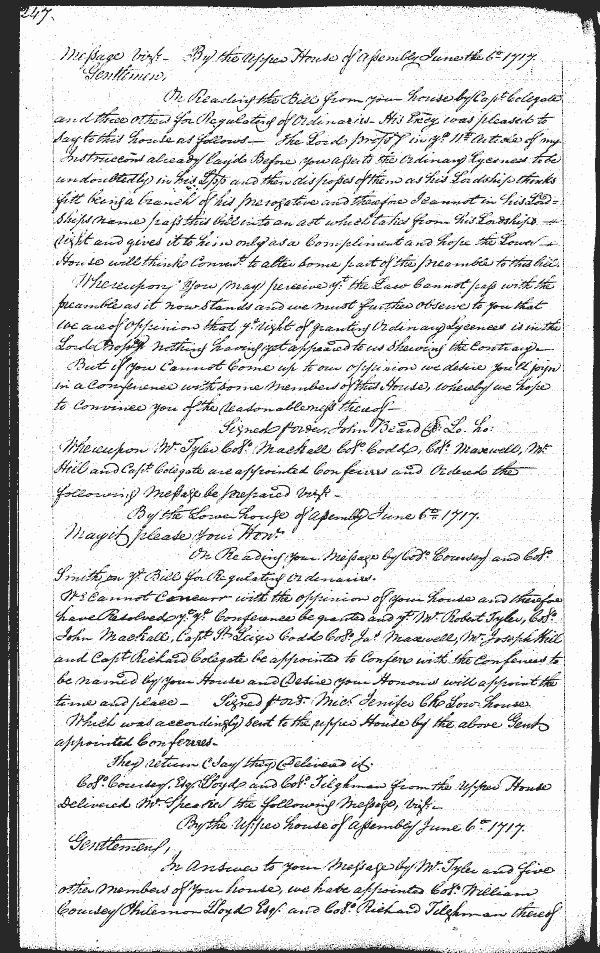 247.
Message vizt.- By the upper House of Assembly June the 6th 1717.
Gentlemen,
On Reading the Bill from your house by Capt. Colegate
and three others for Regulating of Ordinaries His Excy. was pleased to
say to this house as follows - The Lord propry in ye 11th Article of my
Instruccons already lay'd Before you asserts the Ordinary Lycenses to be
undoubtedly in his Lpp and then disposes of them as his Lordship thinks
fitt being a branch of his prerogative and therefore I cannot in his Lord=
ships name pass this bill into an act which takes from his Lordships
right and gives it to him only as a Compliment and hope the Lower
House will think Convent. to alter some part of the preamble to this bill
Whereupon You may perceive yt the Law Cannot pass with the
preamble as it now Stands and we must further Observe to you that
we are of Oppinion that ye right of granting Ordinary Lycences is in the
Lord Propry nothing having yet appeared to us shewing the Contrary-
But if you Cannot Come up to our oppinion we desire you'll joyn
in a Conference with some Members of this House, whereby we hope
to convince you of the reasonableness thereof-
Signed p order, John Beard Cl. Up. ho:
Whereupon Mr. Tyler Colo. Mackall Colo. Codd, Colo. Maxwell, Mr.
Hill and Capt. Colegate are appointed Conferrs and Ordered the
following Message be prepared vizt.-
By the Lower house of Assembly June 6th 1717.
May it please your Honrs.
On Reading your Message by Colo. Coursey and Colo.
Smith on ye Bill for Regulating Ordenaries.
We Cannot Concurr with the oppinion of your house and therefore
have Resolved yt ye Conference be granted and yt Mr. Robert Tyler, Colo.
John Mackall, Capt. St. Liger Codd Colo. Jas. Maxwell, Mr. Joseph Hill
and Capt. Richard Colegate be appointed to Confere with the Conferees to
be named by your House and Desire your Honours will appoint the
time and place - Signed p ord. Mich. Jenifer Clk Low. house
Which was accordingly sent to the upper House by the above Gent
appointed Conferres.-
They return & Say they Delivered it.
Colo. Coursey, Esqr. Lloyd and Colo. Tilghman from the Upper House
Delivered Mr. Speaker the following Message, vizt.-
By the Upper house of Assembly June 6th 1717.
Gentlemen,
In Answer to your Message by Mr. Tyler and five
other members of your house, we have appointed Colo. William
Coursey Philemon Lloyd Esqr. and Colo. Richard Tilghman thereof